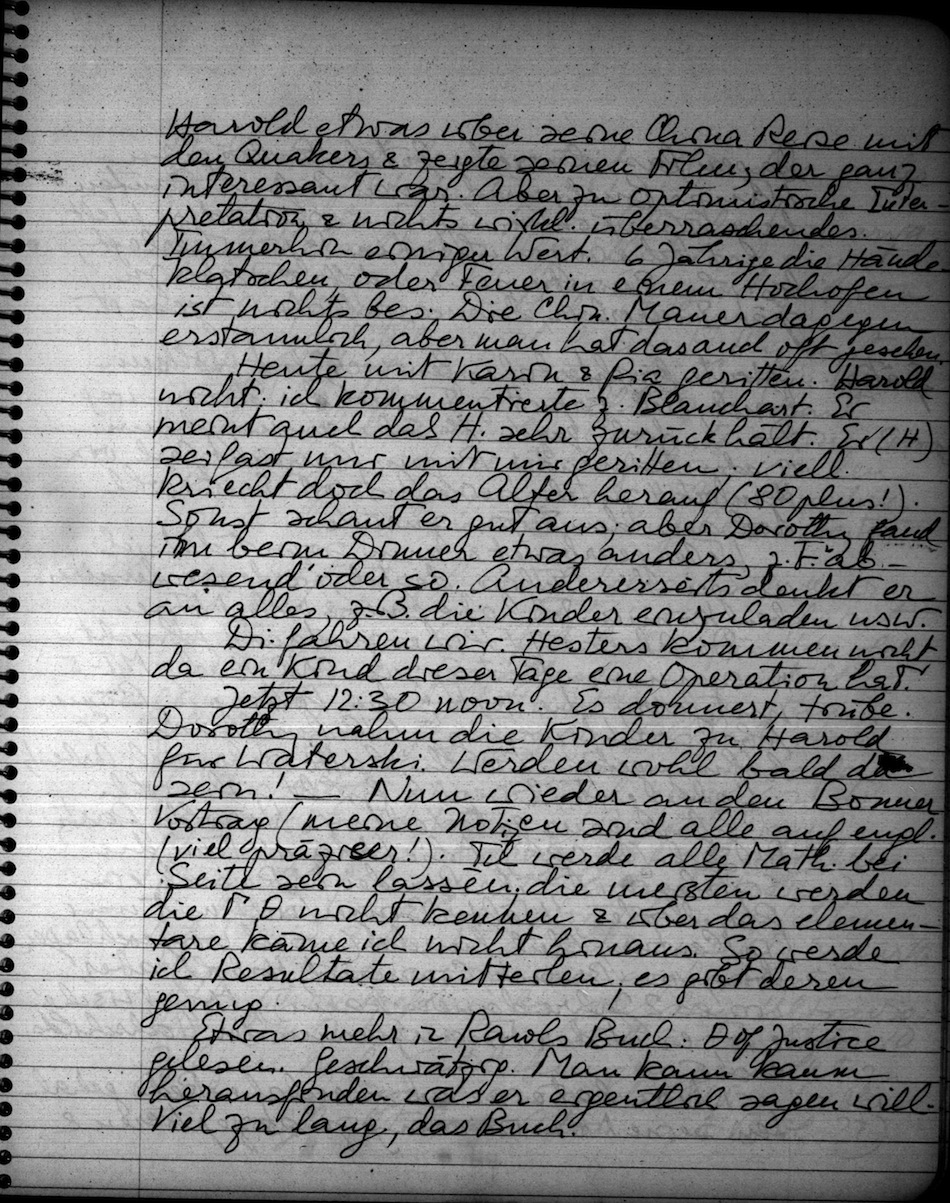 Harold etwas über seine China Reise mit
den Quakers & zeigte seinen Film, der ganz
interessant war. Aber zu optimistische Inter-
pretation & nichts wirkl. überraschendes.
Immerhin einiger Wert. 6 Jährige die Hände
klatschen oder Feuer in einem Hochofen
ist nichts bes. Die Chin. Mauer dagegen
erstaunlich, aber man hat das auch oft gesehen.
Heute mit Karin & Pia geritten. Harold
nicht. ich kommentierte z. Blanchart. Er
meint auch das H. sehr zurückhält. Er (H)
sei fast nur mit mir geritten. viell.
kriecht doch das Alter herauf (80 plus!).
Sonst schaut er gut aus; aber Dorothy fand
ihn beim Dinner etwas anders, z.T. ab-
wesend oder so. Andererseits denkt er
an alles, z.B. die Kinder einzuladen usw.
Di. fahren wir. Hesters kommen nicht
da ein Kind dieser Tage eine Operation hat.
Jetzt 12:30 noon. Es donnert, trübe.
Dorothy nahm die Kinder zu Harold
für Waterski. Werden wohl bald da
sein! — Nun wieder an den Bonner
Vortrag (meine Notizen sind alle auf engl.
(viel präziser!). Ich werde alle Math. bei
Seite sein lassen; die meisten werden
die Γ Θ nicht kennen & über das elemen-
tare käme ich nicht hinaus. So werde
ich Resultate mitteilen, es gibt deren
genug.
Etwas mehr in Rawls Buch: Θ of Justice
gelesen. Geschwätzig. Man kann kaum
herausfinden was er eigentlich sagen will.
Viel zu lang, das Buch.